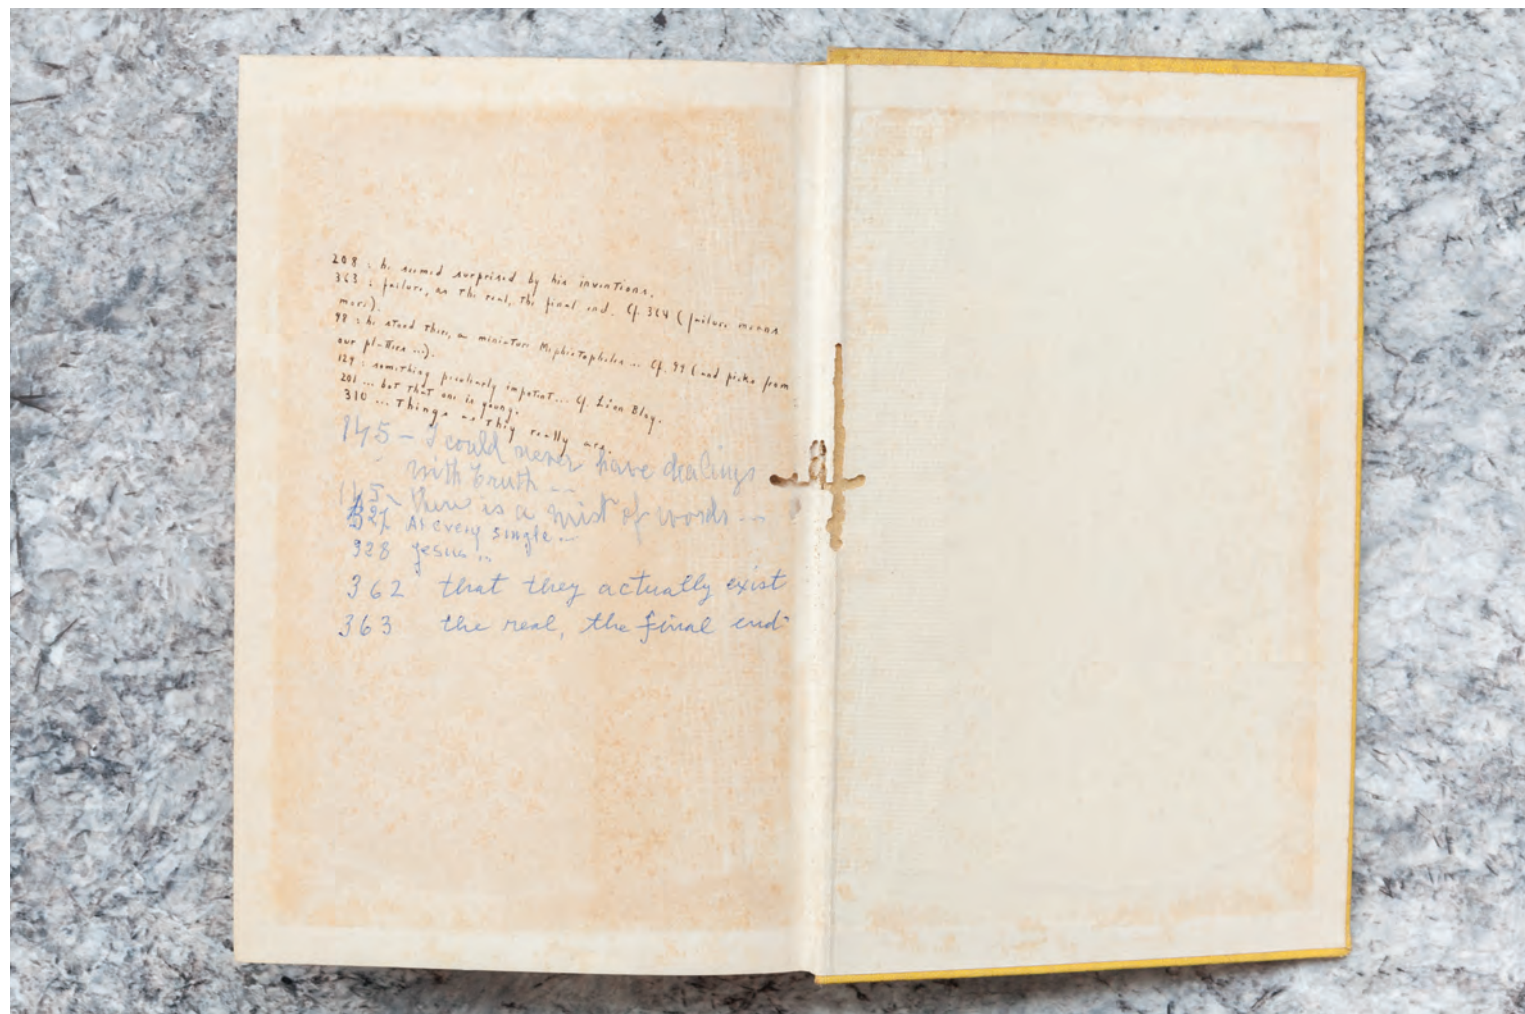 208 : he seemed surprised by his inventions.
363 : failure, as the real, the final end. Cf. 364 (failure means
more).
98 : he stood there, a miniature Mephistopheles ... Cf. 99 (and picks from
our platters ...).
129 : something peculiarly impotent ... Cf. Léon Bloy.
201 ... but that one is young.
310 ... things as they really are.
145 – I could never have dealings
with truth ...
145 – there is a mist of words ...
327 At every single ...
328 Jesus ...
362 that they actually exist
363 the real, the final end